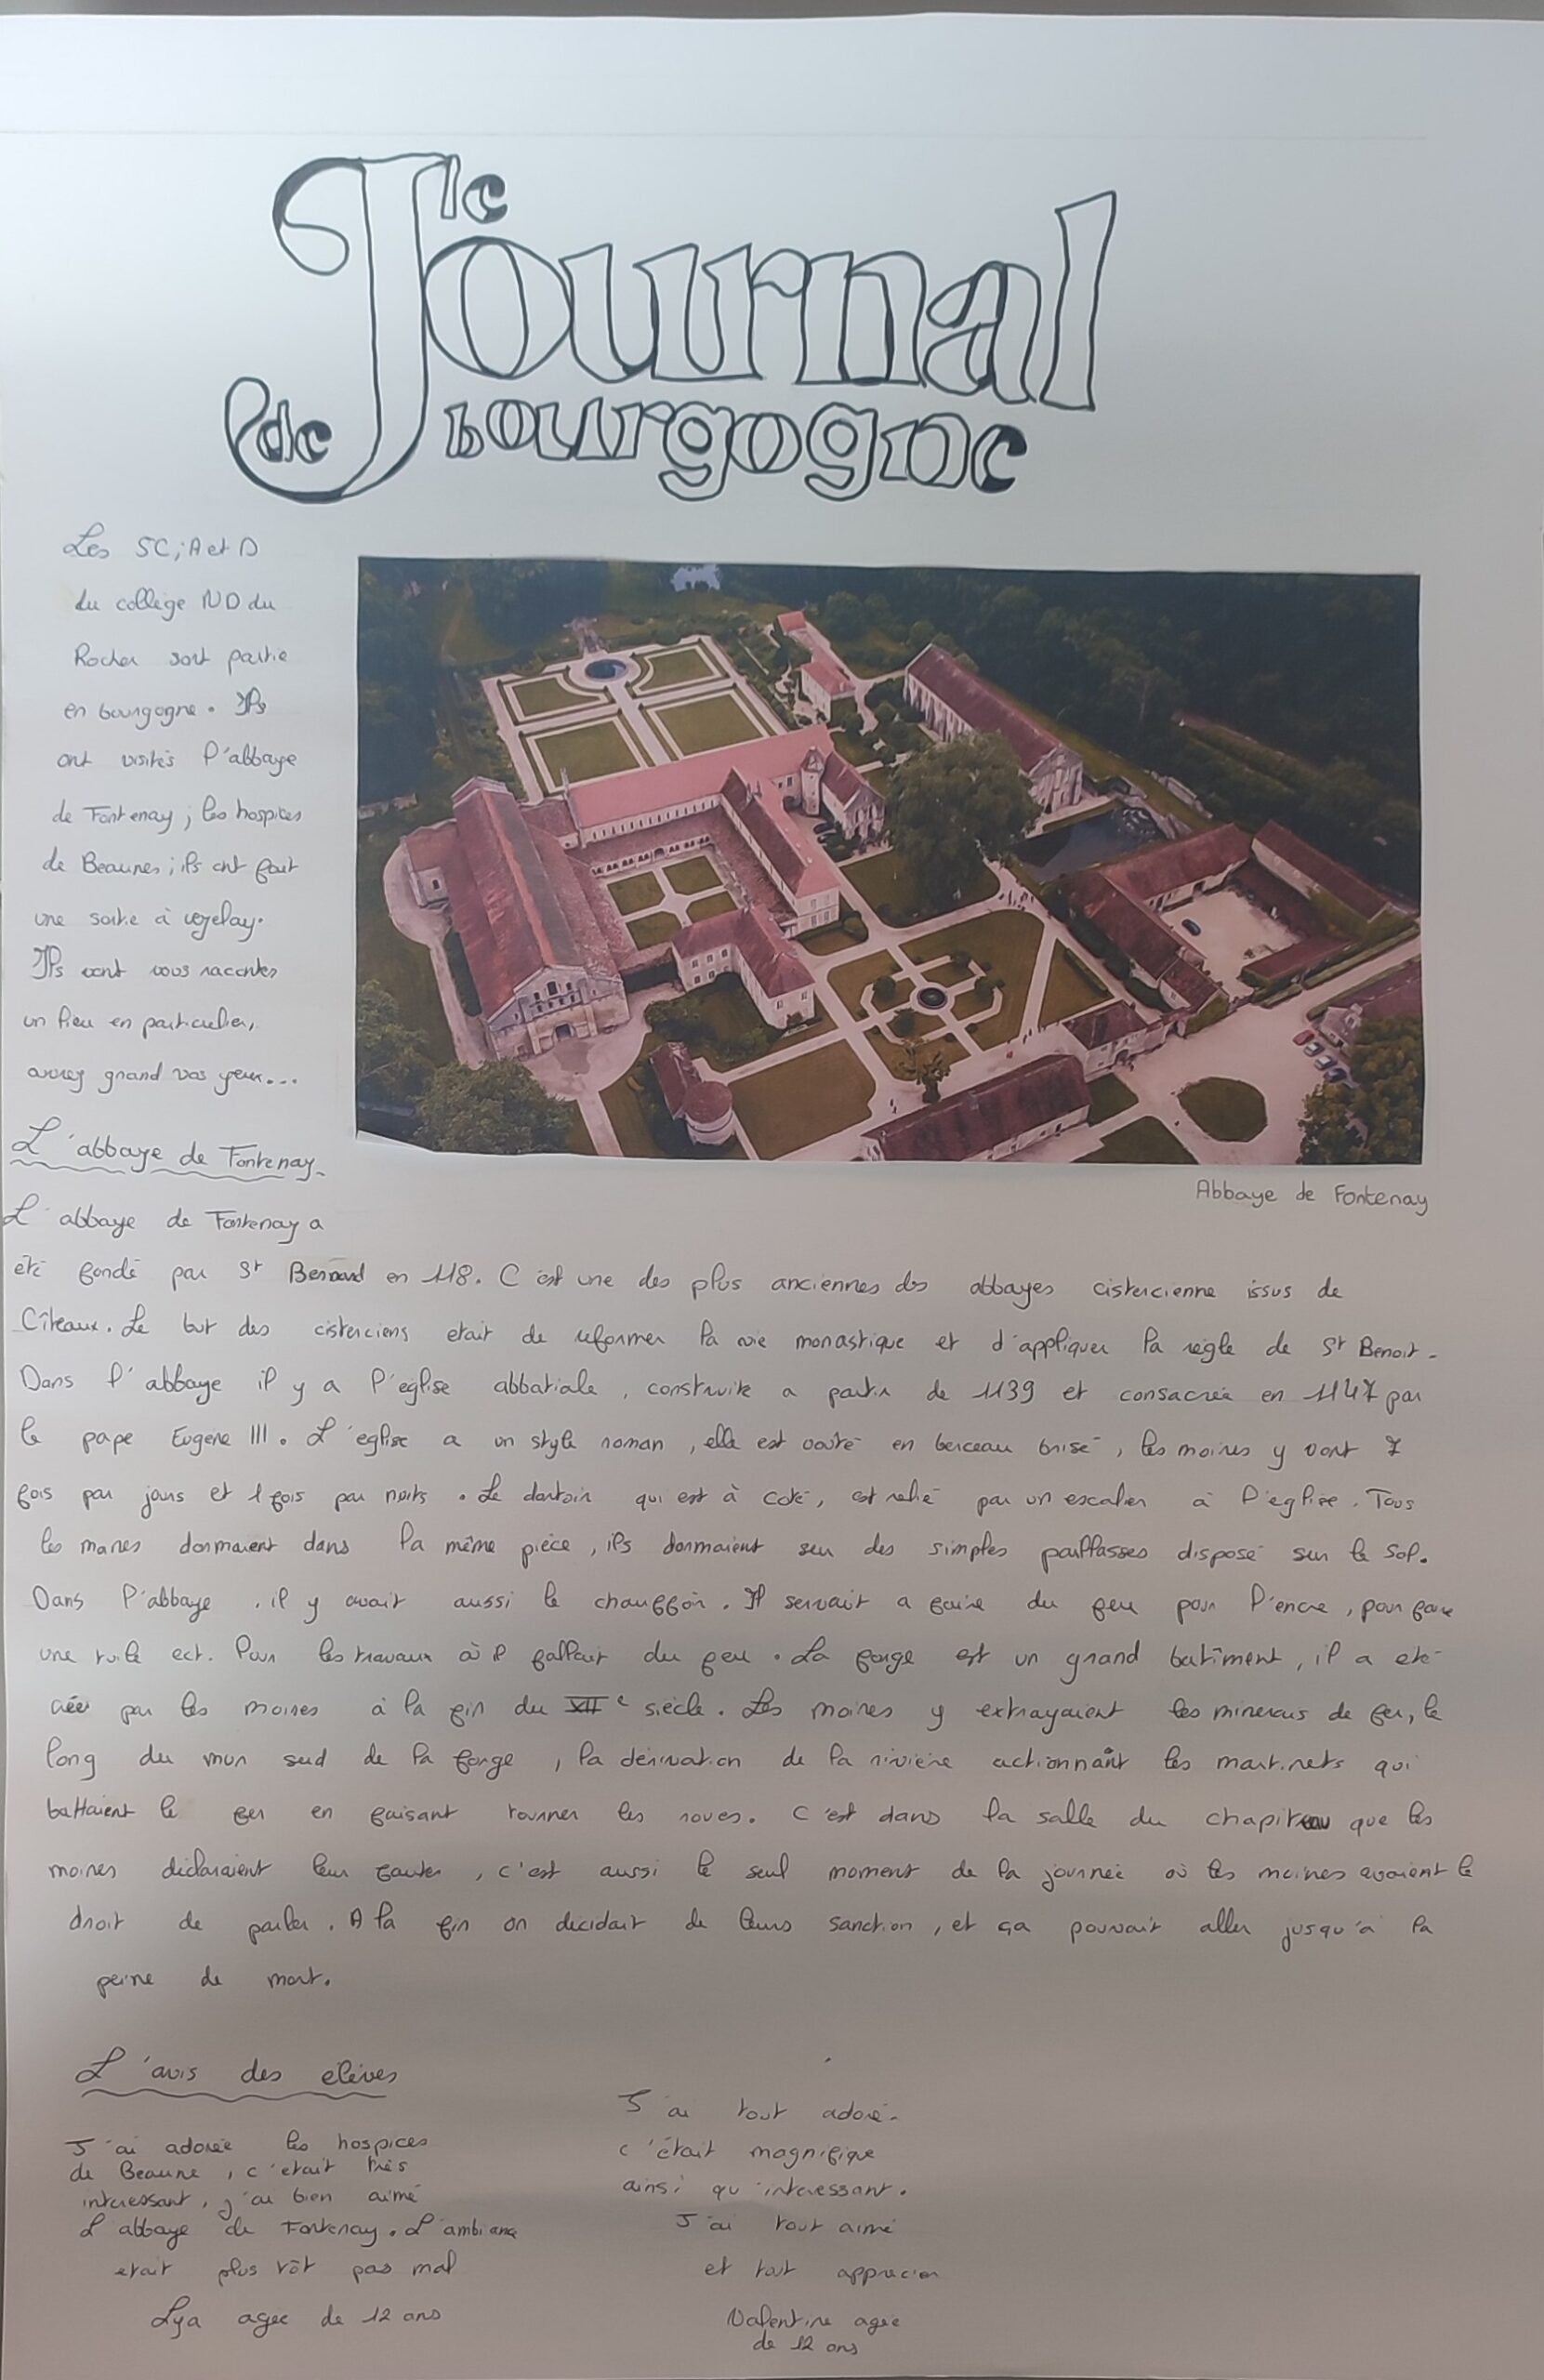 le
Journal
de bourgogne
Les 5C; A et D
du collège ND du
Rocher sont partie
en bourgogne. Ils
ont visités l'abbaye
de Fontenay; les hospices
de Beaunes; ils ont fait
une sortie à vezelay.
Ils vont vous raconter
un lieu en particulier,
ouvrez grand vos yeux...
L'abbaye de Fontenay
Abbaye de Fontenay
L'abbaye de Fontenay a
été fondé par St Bernard en 118. C'est une des plus anciennes des abbayes cistercienne issus de
Cîteaux. Le but des cisterciens etait de reformer la vie monastique et d'appliquer la règle de St Benoit.
Dans l'abbaye il y a l'eglise abbatiale, construite a partir de 1139 et consacrée en 1147 par
le pape Eugene III. L'eglise a un style roman, elle est voûté en berceau brisé, les moines y vont 7
fois par jours et 1 fois par nuits. Le dortoir qui est à coté, est relié par un escalier à l'eglise. Tous
les moines dormaient dans la même pièce, ils dormaient sur des simples paillasses disposé sur le sol.
Dans l'abbaye, il y avait aussi le chauffoir. Il servait a faire du feu pour l'encre, pour faire
une tuile ect. Pour les travaux où il fallait du feu. La forge est un grand batîment, il a été
créer par les moines à la fin du XII e siècle. Les moines y extrayaient les minerais de fer, le
long du mur sud de la forge, la dérivation de la rivière actionnant les martinets qui
battaient le fer en faisant tourner les roues. C'est dans la salle du chapiteau que les
moines déclaraient leur fautes, c'est aussi le seul moment de la journée où les moines avaient le
droit de parler. A la fin on décidait de leurs sanction, et ça pouvait aller jusqu'à la
peine de mort.
L'avis des élèves
J'ai adorée les hospices
de Beaune, c'etait très
interessant, j'ai bien aimé
L'abbaye de Fontenay. L'ambiance
etait plus tôt pas mal
Lya agée de 12 ans
J'ai tout adoré.
c'était magnifique
ainsi qu'interessant.
J'ai tout aimé
et tout apprecier
Valentine agée
de 12 ans